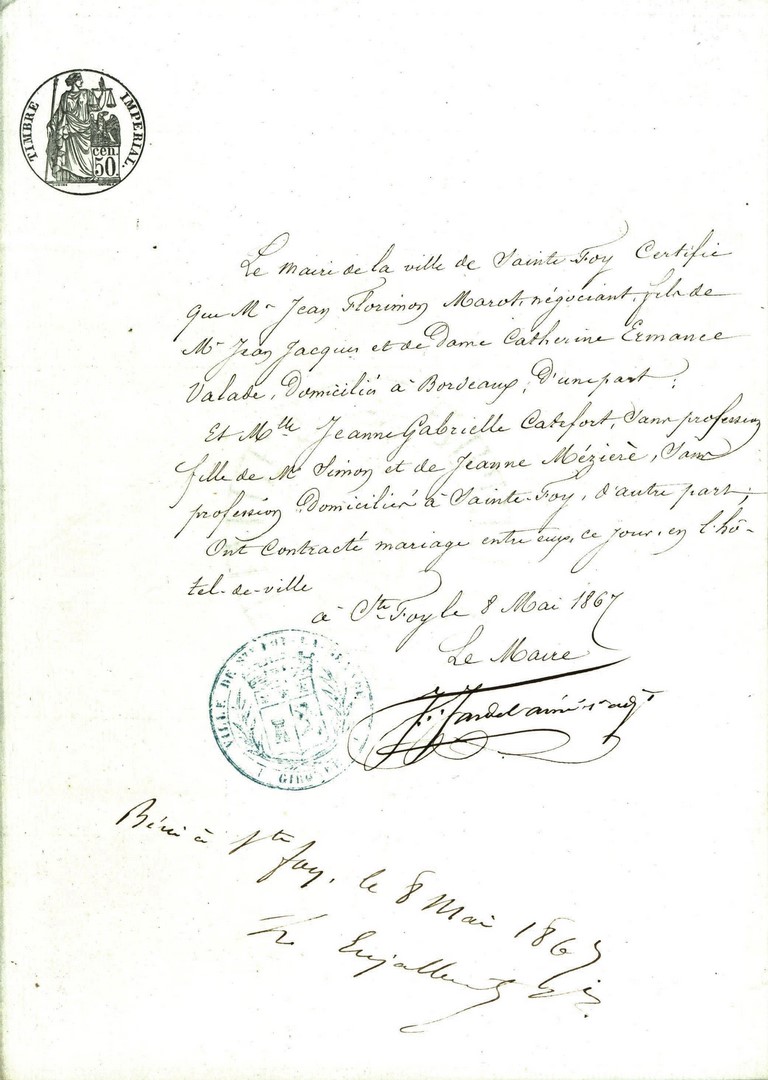 TIMBRE IMPERIAL.
cen.
50.
Le Maire de la ville de Sainte-Foy Certifie
que Mr Jean Florimon Marot, négociant, fils de
Mr Jean Jacques et de Dame Catherine Ermance
Valade, Domiciliés à Bordeaux, D'une part;
Et Mlle Jeanne Gabrielle Catefort, sans profession
fille de Mr Simon et de Jeanne Mézière, sans
profession Domiciliés à Sainte-Foy, d'autre part;
Ont Contracté mariage entre eux, ce jour, en l'hô-
tel-de-ville
à Ste Foy le 8 Mai 1867
Le Maire
VILLE DE STE FOY LA GRANDE
GIRONDE
Béni à Ste foy, le 8 Mai 1867